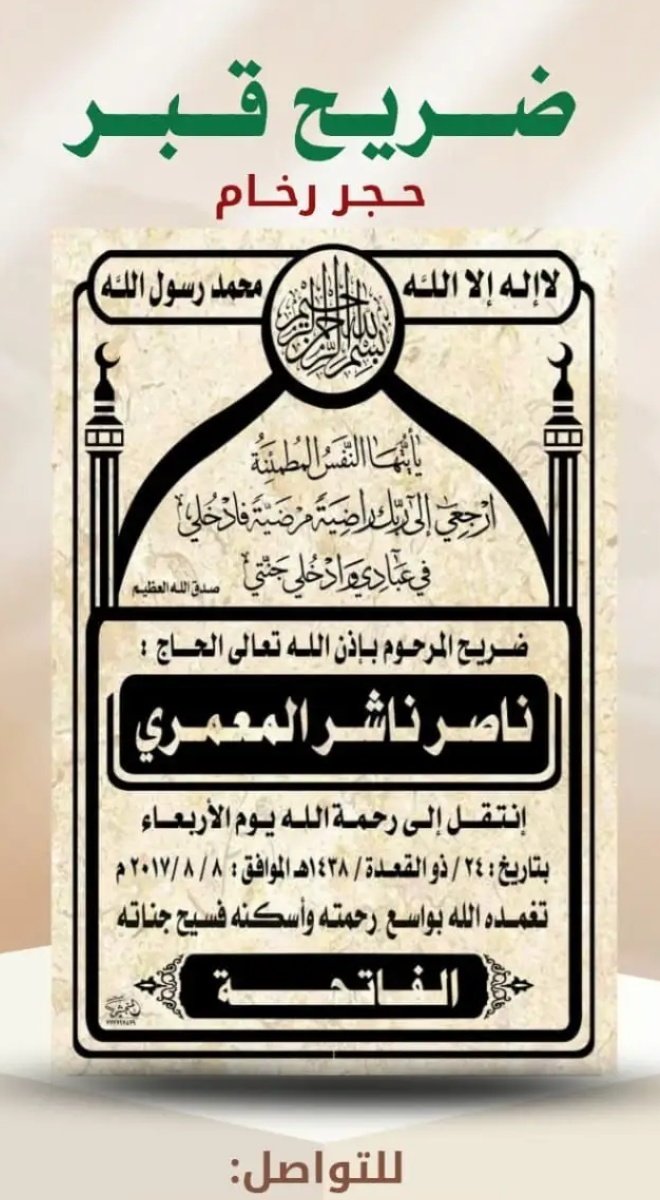 ضريح قبر
حجر رخام
لاإله إلا الله
بسم الله الرحمن الرحيم
محمد رسول الله
يَا أَيَّتُهَا النَّفْسُ المُطمَئِنَّةُ
ارْجِعِي إِلَى رَبِّكِ رَاضِيَةً مَرْضِيَّةً فَادْخُلِي
فِي عِبَادِي وَادْخُلِي جَنَّتِي
صدق الله العظيم
ضريح المرحوم بإذن الله تعالى الحاج :
ناصر ناشر المعمري
إنتقل إلى رحمة الله يوم الأربعاء
بتاريخ : ٢٤ / ذو القعدة / ١٤٣٨هـ الموافق : ٨ / ٨ /٢٠١٧ م
تغمده الله بواسع رحمته وأسكنه فسيح جناته
الفاتحة
للتواصل: